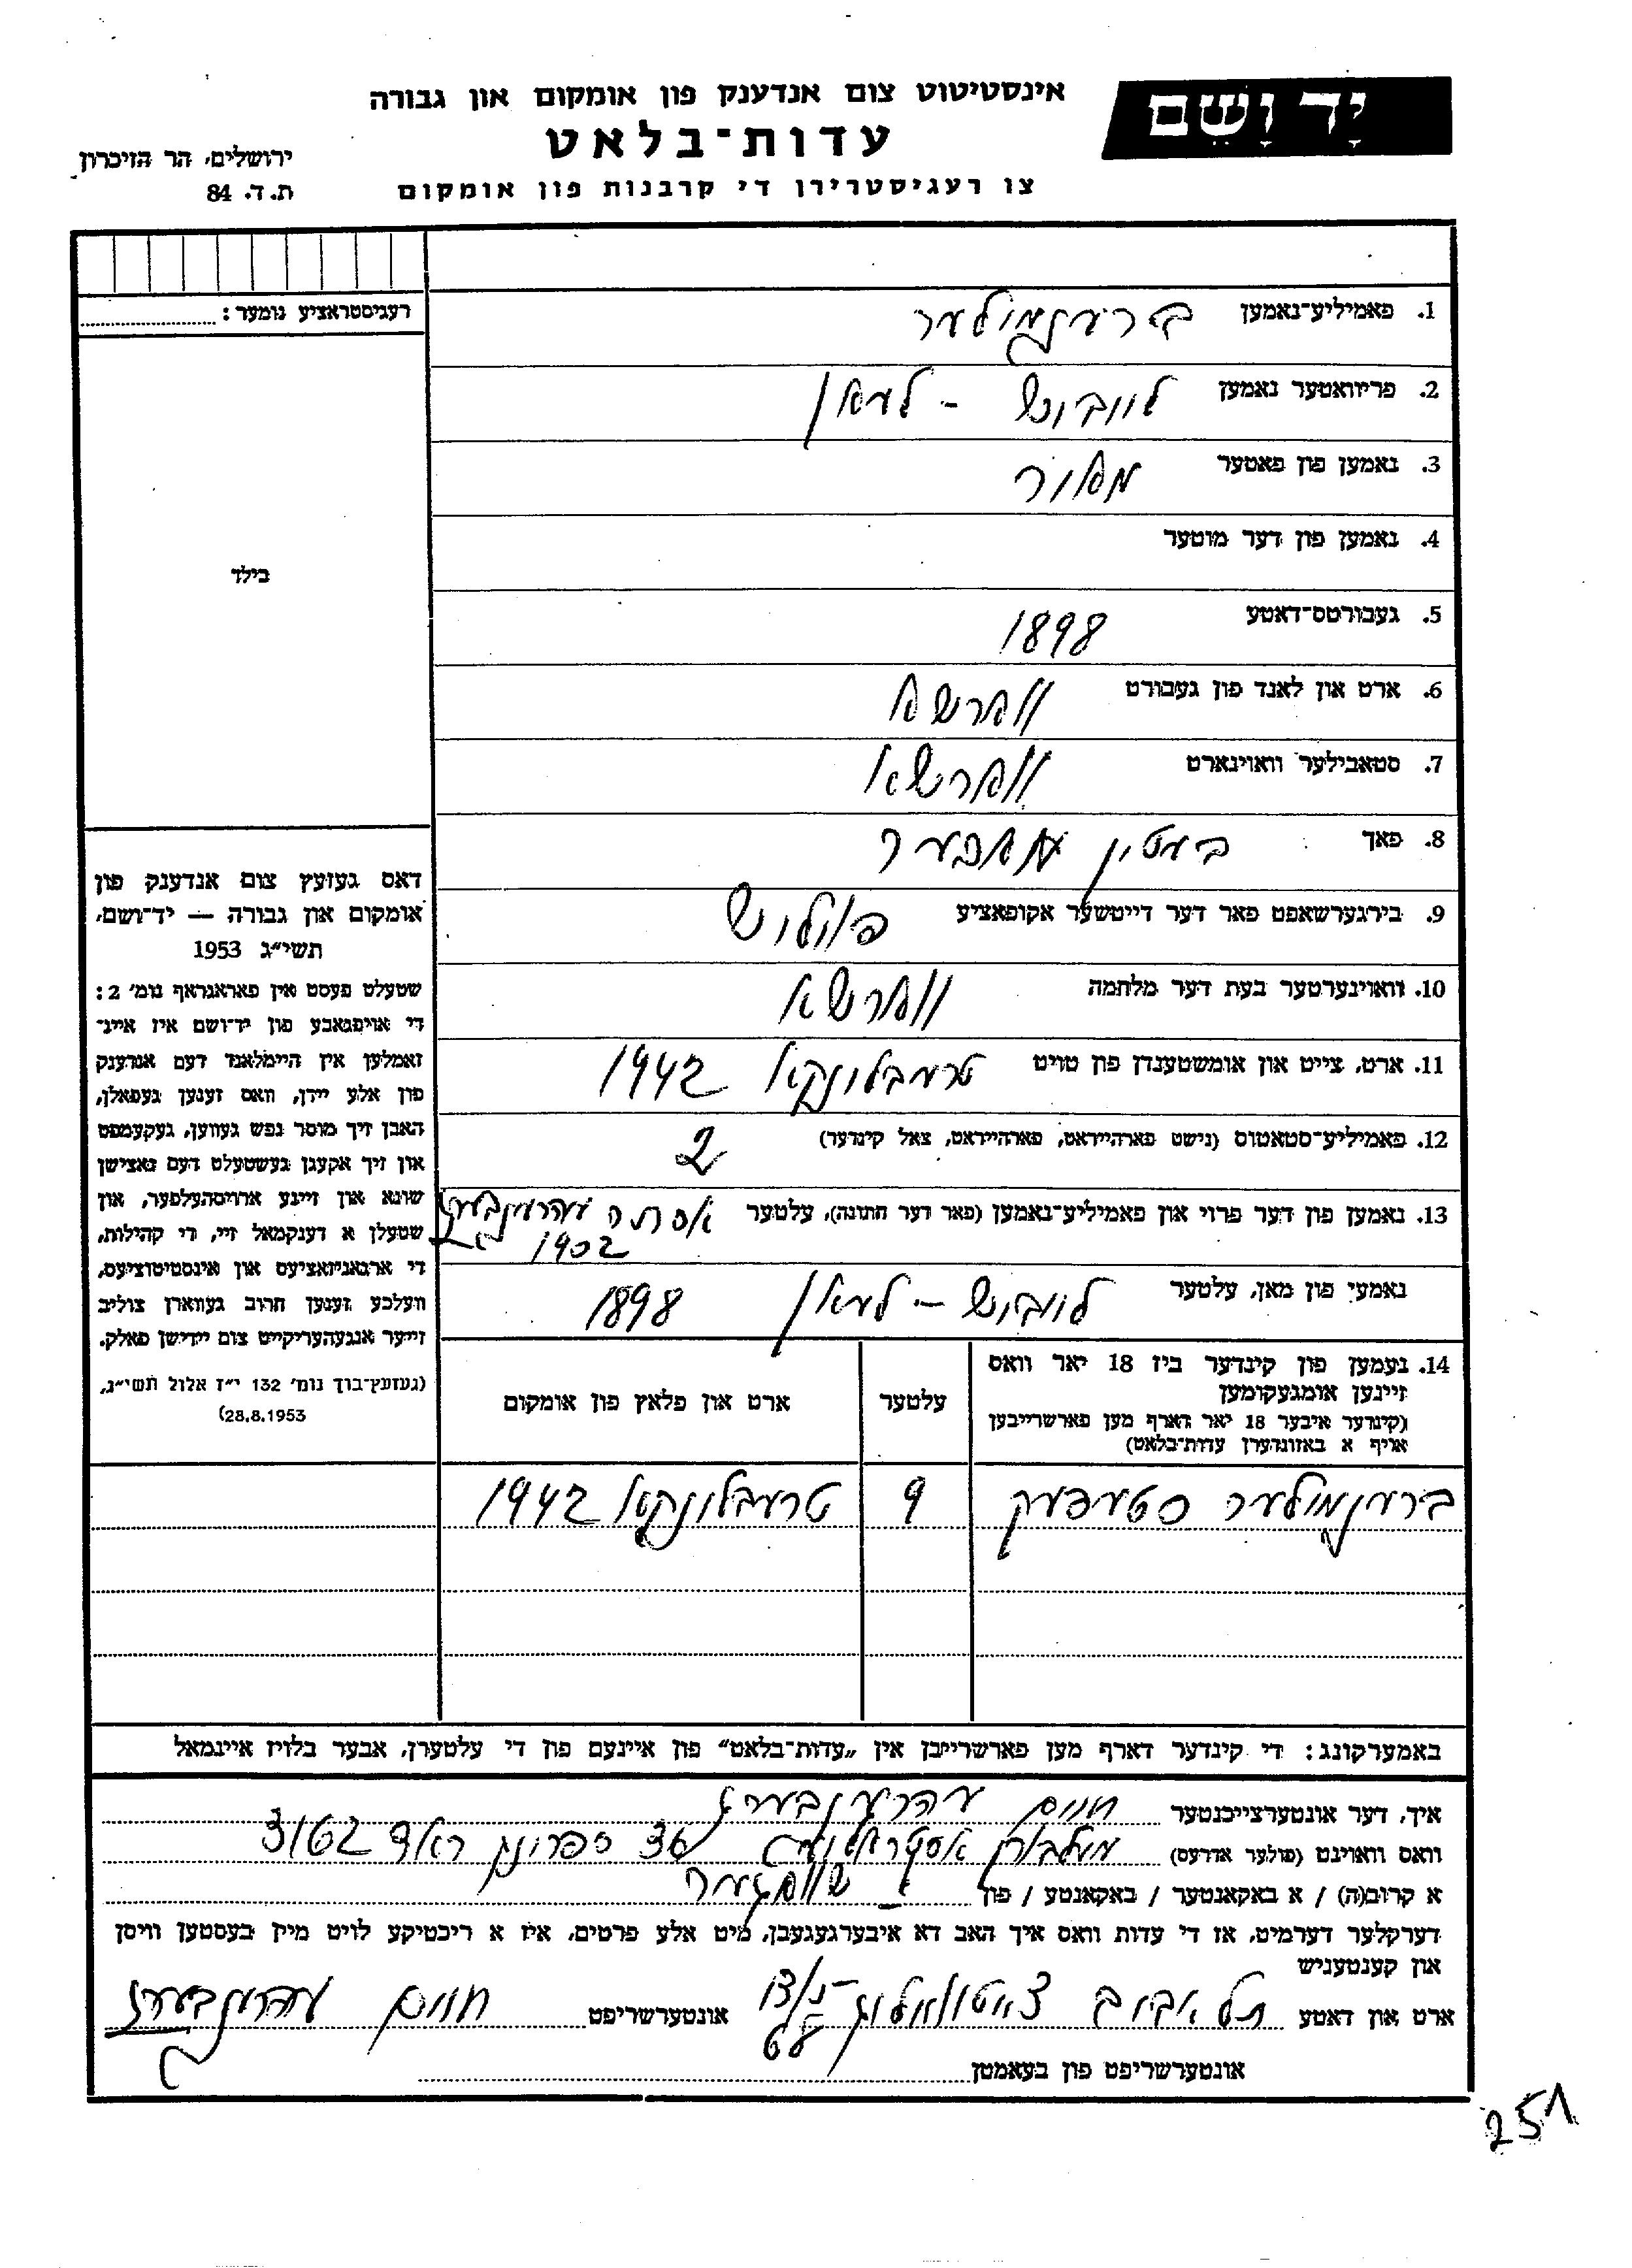 יד ושם
אינסטיטוט צום אנדענק פון אומקום און גבורה
עדות-בלאט
צו רעגיסטרירן די קרבנות פון אומקום
ירושלים, הר הזיכרון
ת.ד. 84
רעגיסטראציע נומער:
בילד
דאס געזעץ צום אנדענק פון
אומקום און גבורה — יד-ושם,
תשי"ג 1953
שטעלט פעסט אין פאראגראף נומ' 2:
די אויפגאבע פון יד-ושם איז איינ-
זאמלען אין היימלאנד דעם אנדענק
פון אלע יידן, וואס זענען געפאלן,
האבן זיך מוסר נפש געווען, געקעמפט
און זיך אקעגן געשטעלט דעם נאצישן
שונא און זיינע ארויסהעלפער, און
שטעלן א דענקמאל זיי, די קהילות,
די ארגאניזאציעס און אינסטיטוציעס,
וועלכע זענען חרוב געווארן צוליב
זייער אנגעהעריקייט צום יידישן פאלק.
(געזעץ-בוך נומ' 132 י"ז אלול תשי"ג,
28.8.1953)
1. פאמיליע-נאמען ברענמילער
2. פריוואטער נאמען לוובוש - לעאן
3. נאמען פון פאטער מאור
4. נאמען פון דער מוטער
5. געבורטס-דאטע 1898
6. ארט און לאנד פון געבורט ווארשא
7. סטאבילער וואוינארט ווארשא
8. פאך
9. בירגערשאפט פאר דער דייטשער אקופאציע פויליש
10. וואוינערטער בעת דער מלחמה ווארשא
11. ארט, צייט און אומשטענדן פון טויט טרעבלונקא 1942
12. פאמיליע-סטאטוס (נישט פארהייראט, פארהייראט, צאל קינדער) 2
13. נאמען פון דער פרוי און פאמיליע-נאמען (פאר דער חתונה), עלטער אסתה עהרענבערג
1902
נאמעי פון מאן, עלטער לוובוש - לעאן 1898
14. נעמען פון קינדער ביז 18 יאר וואס
זיינען אומגעקומען
(קינדער איבער 18 יאר דארף מען פארשרייבן
אויף א באזונדערן עדות-בלאט)
עלטער
ארט און פלאץ פון אומקום
ברענמילער סטעפעק 9 טרעבלונקא 1942
באמערקונג: די קינדער דארף מען פארשרייבן אין "עדות-בלאט" פון איינעם פון די עלטערן, אבער בלויז איינמאל
איך, דער אונטערצייכנטער חיים עהרענבערג
וואס וואוינט (פולער אדרעס) מעלבורן אסטראליע ספרינג ראוד
א קרוב(ה) / א באקאנטער / באקאנטע / פון שוואגער
דערקלער דערמיט, אז די עדות וואס איך האב דא איבערגעגעבן, מיט אלע פרטים, איז א ריכטיקע לויט מיין בעסטען וויסן
און קענטעניש
ארט און דאטע תל אביב אונטערשריפט חיים עהרענבערג
אונטערשריפט פון בעאמטן
251